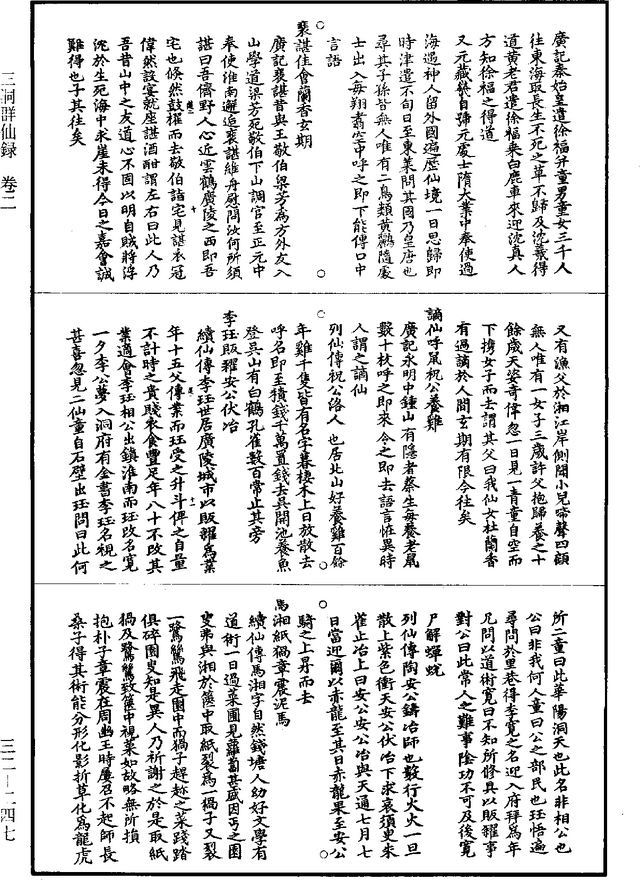 廣記秦始皇遣徐福并童男童女三千人
往東海取長生不死之草不歸及沈羲得
道黃老君遣徐福乘白鹿車來迎沈真人
方知徐福之得道
又元藏幾自號元處士隋大業中奉使過
海遇神人留外國遍歷仙境一日思歸即
時津遣不旬日至東萊問其國乃皇唐也
尋其子孫皆無人唯有二鳥類黃鸝隨處
士出入每翔翥空中呼之即下能傳口中
言語
裴諶佳會蘭香玄期
廣記裴諶昔與王敬伯梁芳為方外友入
山學道梁芳死敬伯下山調官至正元中
奉使淮南邂逅裴諶維舟慰問汝何所須
諶曰吾儕野人心近雲鶴廣陵之西即吾
宅也倏然鼓櫂而去敬伯詣宅見諶衣冠
偉然設宴就座諶酒酣謂左右曰此人乃
吾昔山中之友道心不固以明自賊將浮
沈於生死海中求崖未得今日之嘉會誠
難得也子其往矣
又有漁父於湘江岸側聞小兒啼聲四顧
無人唯有一女子三歲許父抱歸養之十
餘歲天姿奇偉忽一日見一青童自空而
下携女子而去謂其父曰我仙女杜蘭香
有過謫於人間玄期有限今往矣
謫仙呼鼠祝公養雞
廣記永明中鍾山有隱者蔡生每養老鼠
數十枚呼之即來令之即去語言恠異時
人謂之謫仙
列仙傳祝公洛人也居北山好養雞百餘
年雞千隻皆有名字暮棲木上日放散去
呼名即至犢錢千萬置錢去吳開池養魚
登吳山有白鶴孔雀數百常止其旁
李珏販糴安公伏冶
續仙傳李珏世居廣陵城市以販糴為業
年十五父傳業而珏受之升斗俾之自量
不計時之貴賤衣食豐足年八十不改其
業適會李珏相公出鎮淮南而珏改名寬
一夕李公夢入洞府有金書李珏名視之
甚喜忽見二仙童自石壁出珏問曰此何
所二童曰此華陽洞天也此名非相公也
公曰非我何人童曰公之部民也珏悟遍
尋問於里巷得李寬之名迎入府拜為年
兄問以道術寬曰不知所修具以販糴事
對公曰此常人之難事陰功不可及後寬
尸解蟬蛻
列仙傳陶安公鑄冶師也數行火火一旦
散上紫色衝天安公伏冶下求哀須臾朱
雀止冶上曰安公安公冶與天通七月七
日當迎爾以赤龍至其日赤龍果至安公
騎之上昇而去
馬湘紙猧章震泥馬
續仙傳馬湘字自然錢塘人幼好文學有
道術一日過菜園見蘿蔔甚盛因丐之園
叟弗與湘於篋中取紙裂為一猧子又裂
一鷺鷥飛走園中而猧子趕趂之菜踐踏
俱碎園叟知是異人乃祈謝之於是取紙
猧及鷺鷥致篋中視菜如故略無所損
抱朴子章震在周幽王時屢召不起師長
桑子得其術能分形化影折草化為龍虎
三洞群仙録　卷二
三二—二四七